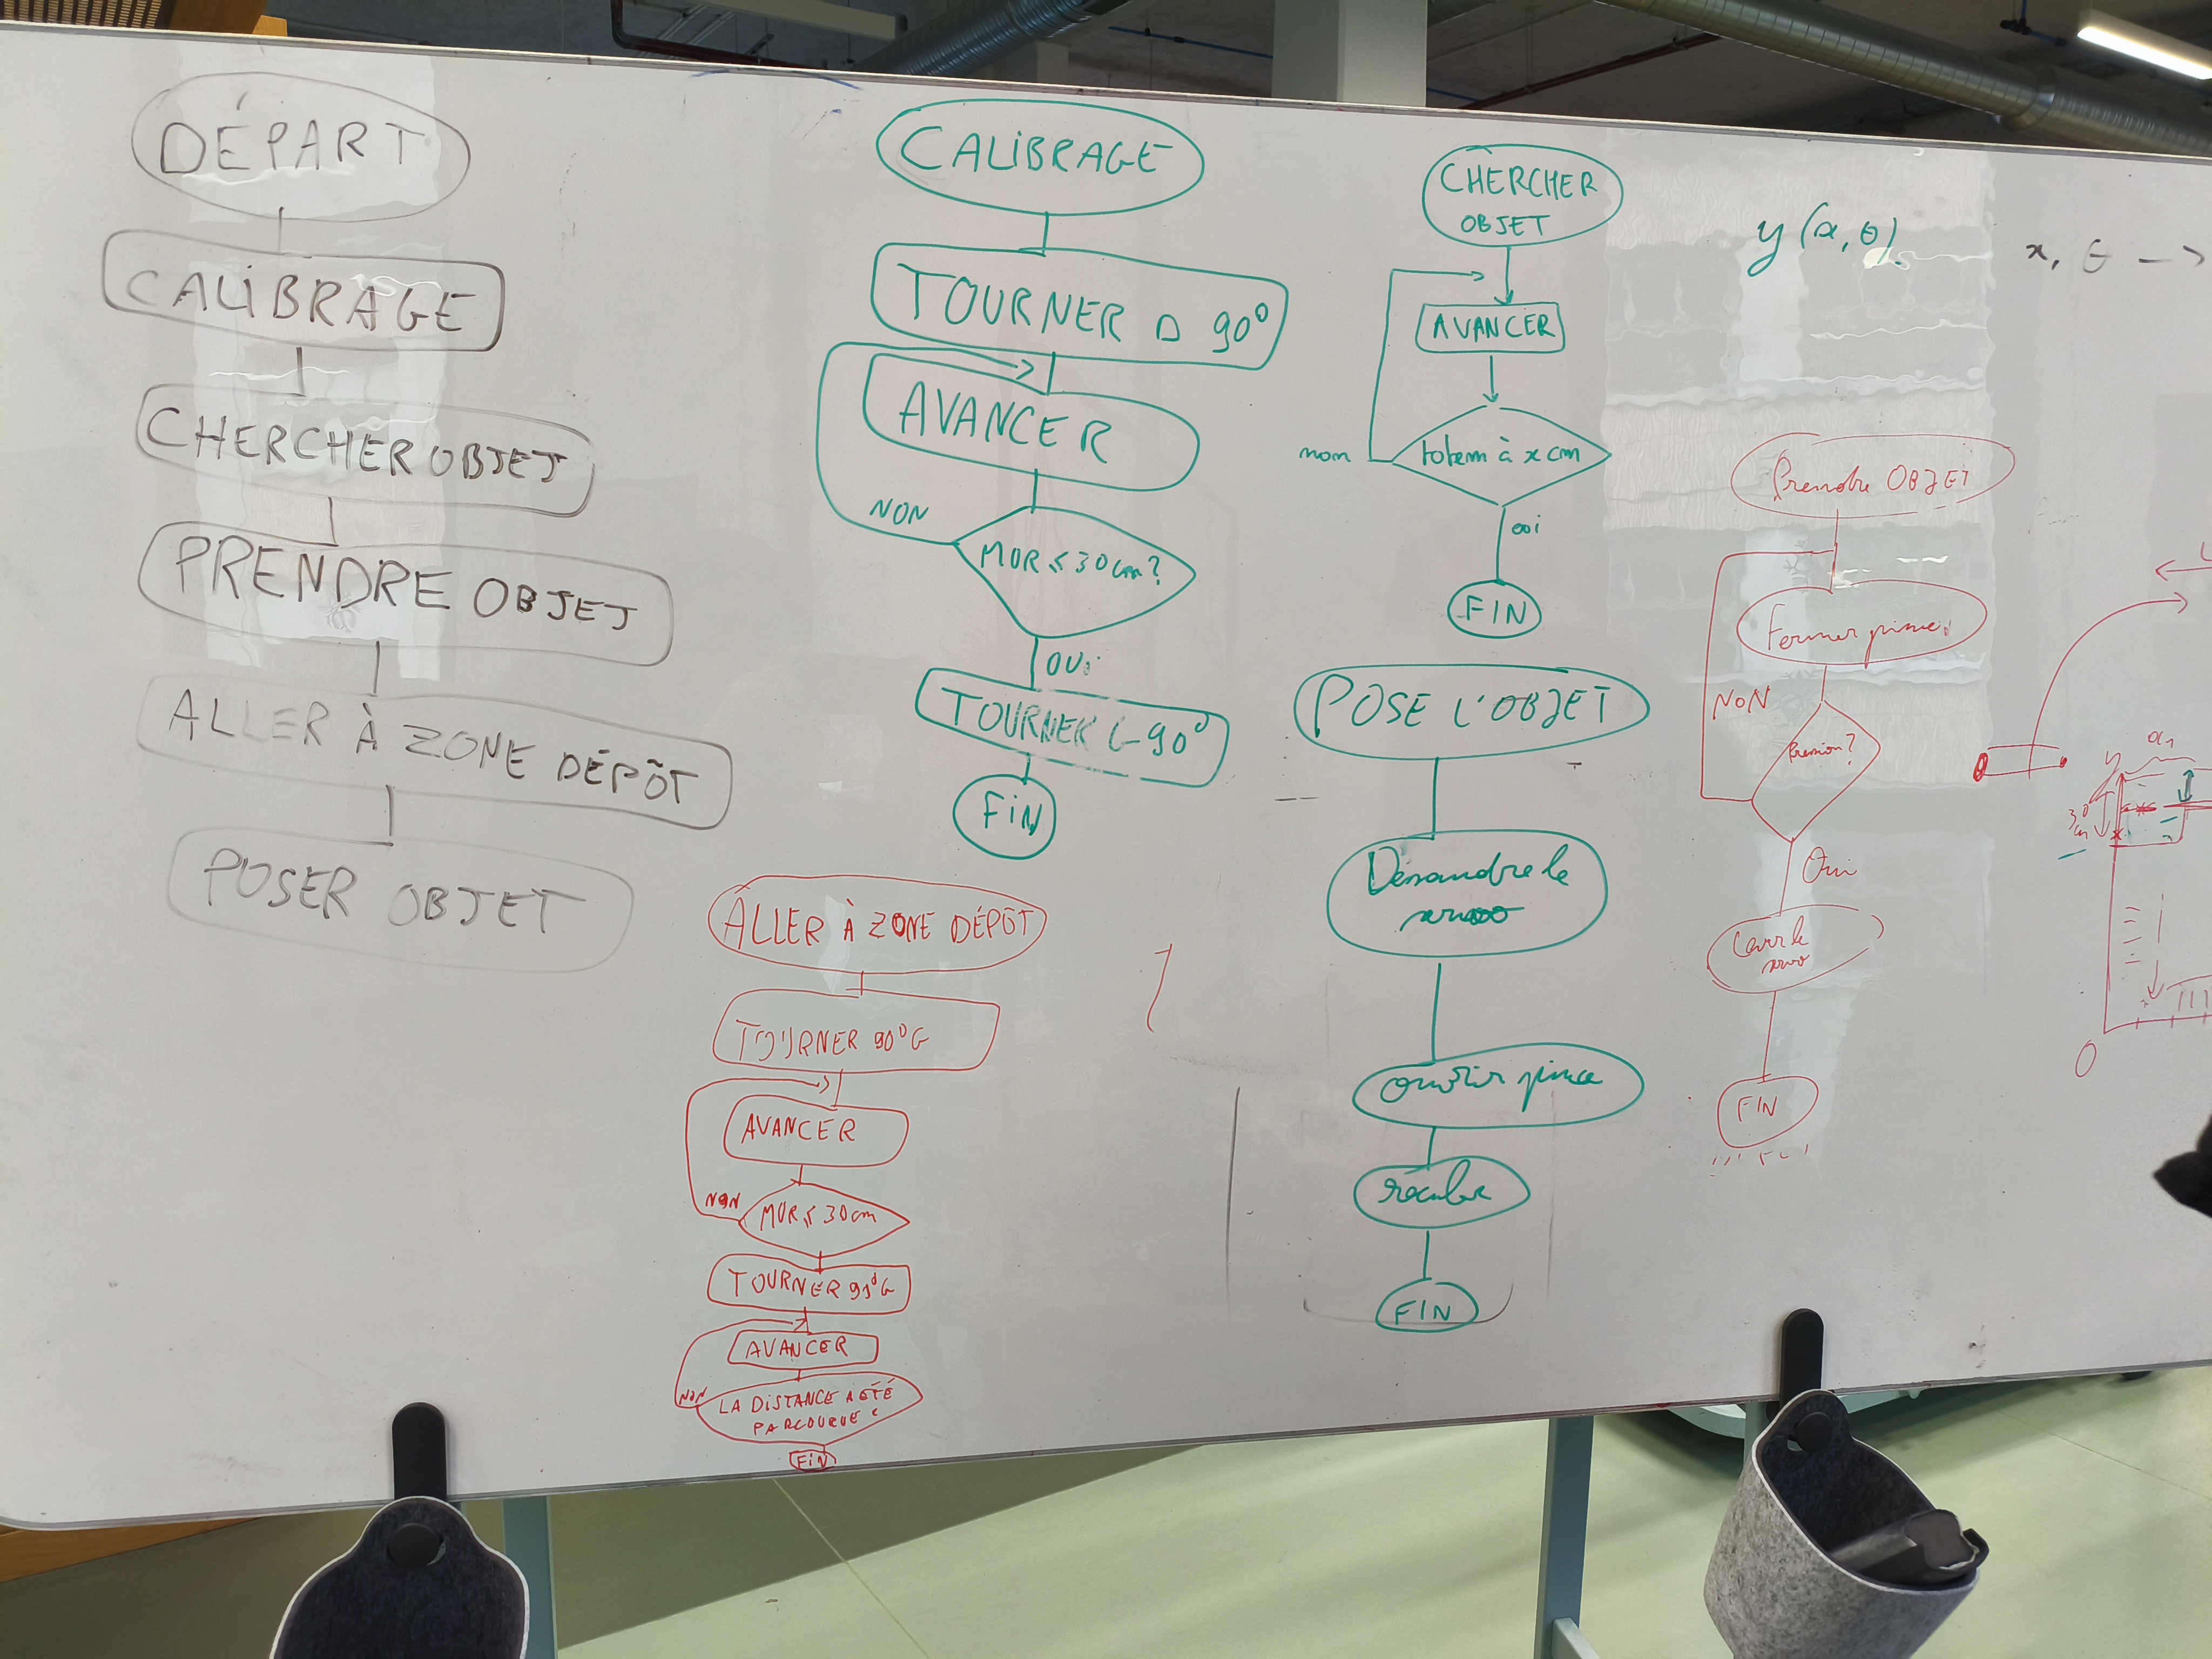 DÉPART
CALIBRAGE
CHERCHER OBJET
PRENDRE OBJET
ALLER À ZONE DÉPÔT
POSER OBJET
CALIBRAGE
TOURNER D 90°
AVANCER
NON
MUR ≤ 30 cm?
OUi
TOURNER G 90°
FiN
ALLER À ZONE DÉPÔT
TOURNER 90° G
AVANCER
NON
MUR ≤ 30 cm
TOURNER 90° G
AVANCER
NON
LA DISTANCE A ÉTÉ
PARCOURUE ?
FiN
CHERCHER
OBJET
AVANCER
non
totem à x cm
oui
FIN
POSE L'OBJET
le
ouvrir pince
reculer
FIN
y(x, θ)
x, θ →
Prendre OBJET
Fermer pince
NON
Pression?
Oui
le
FIN
30
cm
0